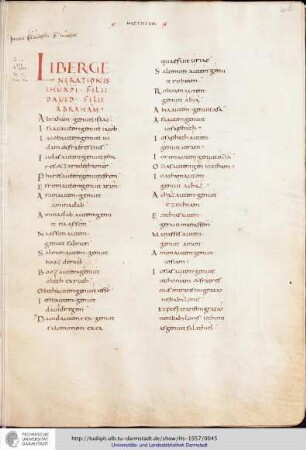 MATTHEUM
LIBER GE
NERATIONIS
IHU XPI FILII
DAVID FILII
ABRAHAM
Abraham genuit isaac
Isaac autem genuit iacob
Iacob autem genuit iu
dam et fratres eius
Iudas autem genuit pha
res et zara de thamar
Phares autem genuit esrom
Esrom autem genuit aram
Aram autem genuit
aminadab
Aminadab autem genu
it naasson
Naasson autem
genuit salmon
Salmon autem genuit
booz de rab
Booz autem genuit
obeth ex ruth
Obeth autem genuit iesse
Iesse autem genuit
david regem
David autem rex genuit
salomonem ex ea
quae fuit uriae
Salomon autem genu
it roboam
Roboam autem
genuit abia
Abia autem genuit asa
Asa autem genuit
iosaphath
Iosaphath autem
genuit ioram
Ioram autem genuit
Ozias autem genuit ioatham
Ioatham autem
genuit achaz
Achaz autem genuit
ezechiam
Ezechias autem
genuit manassen
Manasses autem
genuit amon
Amon autem genuit
iosiam
Iosias autem genuit
iechoniam et fratres
eius in transmigratio
ne babylonis
Et post transmigratio
nem babylonis iechoni
as genuit salathiel
TECHNISCHE
UNIVERSITÄT
DARMSTADT
http://tudigit.ulb.tu-darmstadt.de/show/Hs-1957/0045
Universitäts- und Landesbibliothek Darmstadt